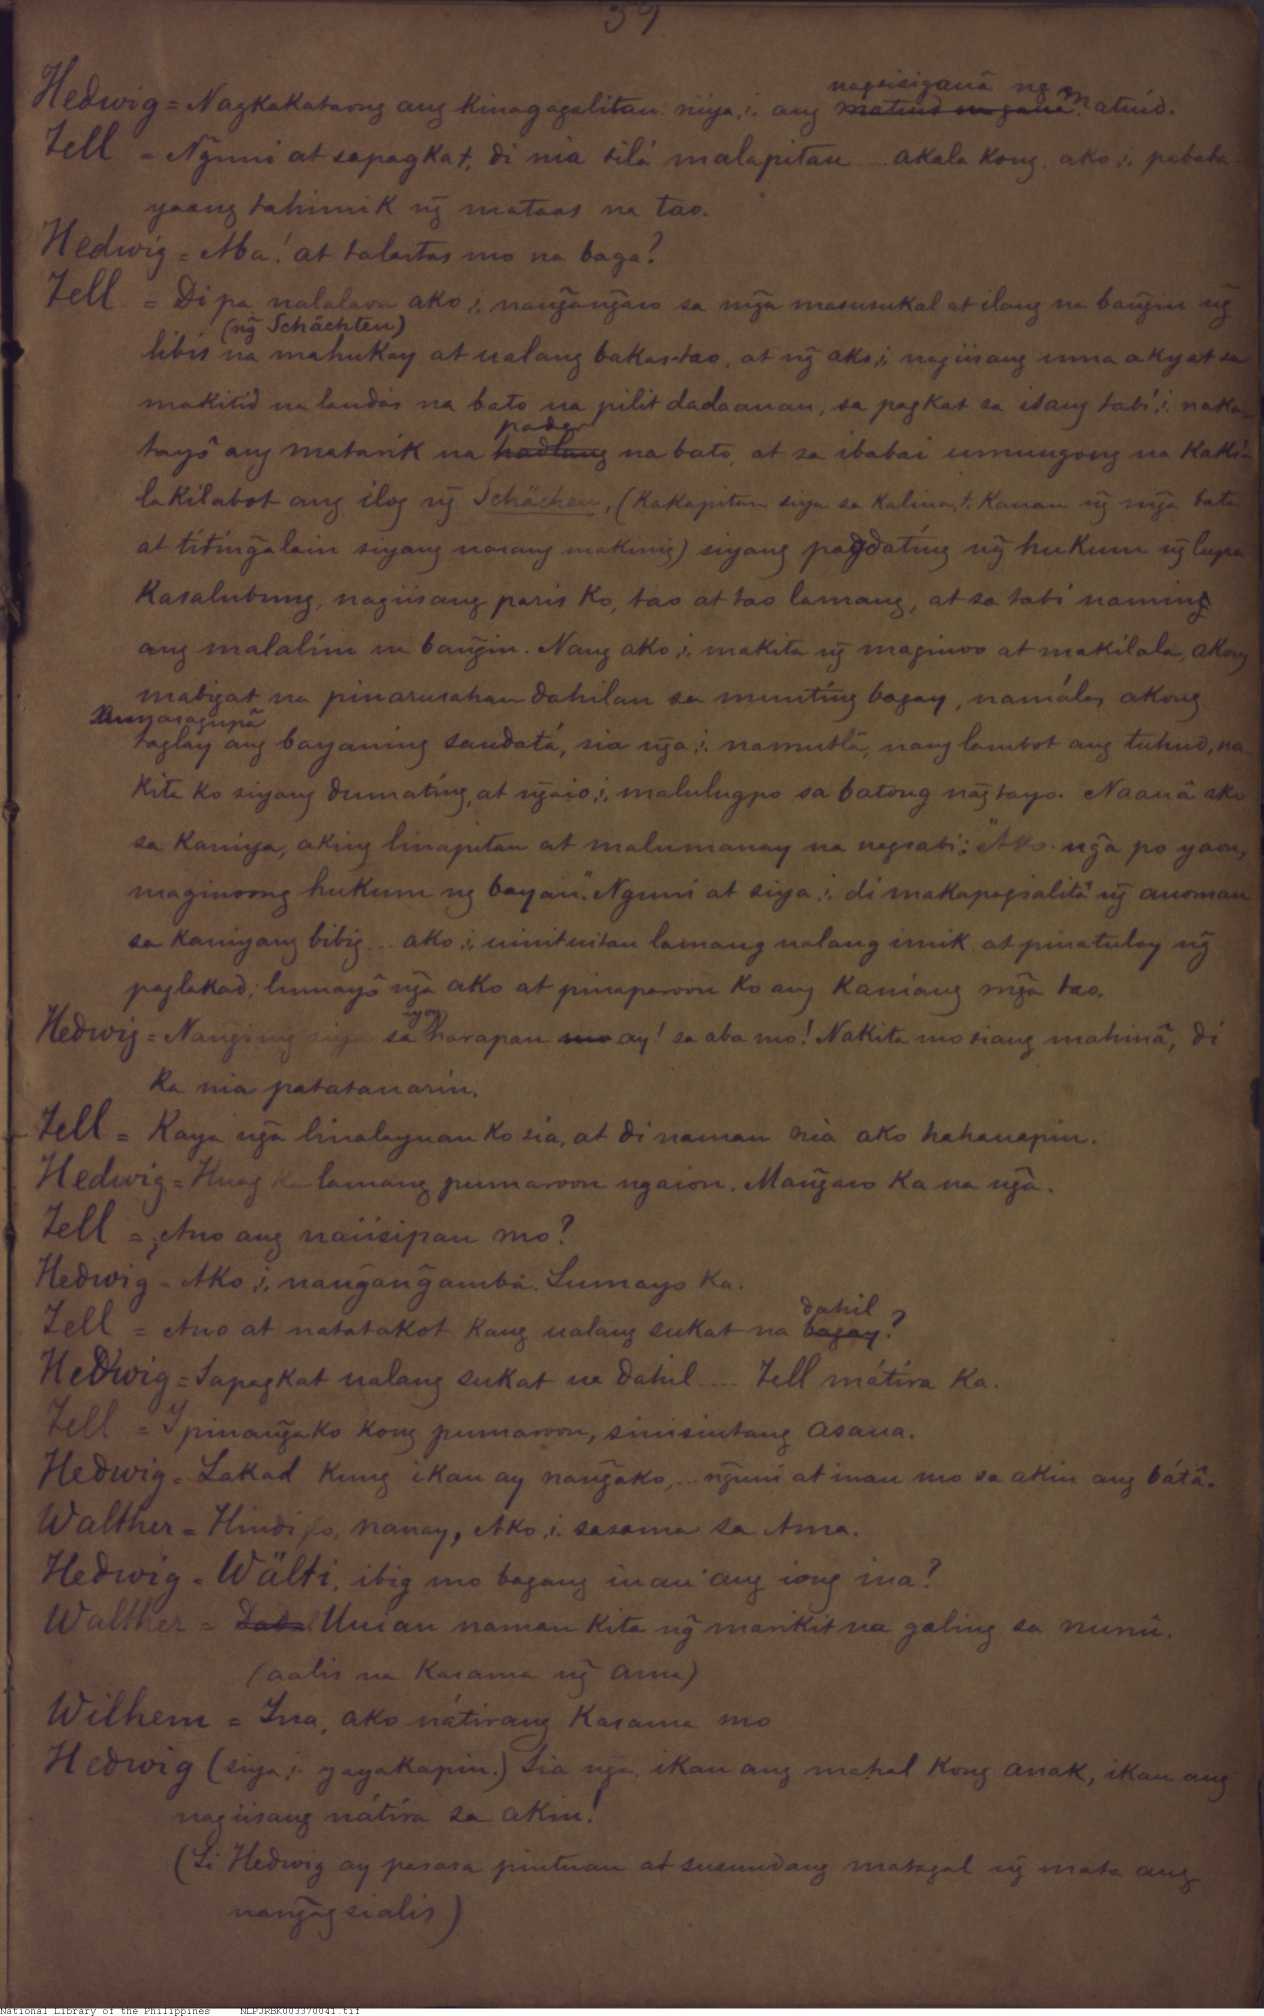 39
nagsisigauâ ng
Hedwig = Nagkakataong ang kinagagalitan niya,i, ang matuid na gaua. Matuid.
Tell = Nḡuni at sapagka,t, di nia silá malapitan ... akala kong, ako,i, pababa-
yaang tahimik nḡ mataas na tao.
Hedwig = Aba! at talastas mo na baga?
Tell = Di pa nalalaon ako,i, nanḡanḡaso sa mḡa masusukal at ilang na banḡin nḡ
(nḡ Schächten)
libis na mahukay at ualang bakas-tao, at nḡ ako,i, nagiisang umaakyat sa
makitid na landas na bato na pilit dadaanan, sa pagkat sa isang tabí,i, naka-
pader
tayô ang matarik na hadlang na bato, at sa ibabai umuugong na kakila-
lakilabot ang ilog nḡ Schächen, (kakapitan siya sa kaliua,t, kanan nḡ mḡa bata
at títinḡalain siyang uasang makinig) siyang pagdatíng nḡ hukum nḡ lupa
kasalubung, nagiisang paris ko, tao at tao lamang, at sa tabí naming
ang malalim na banḡin. Nang ako,i, makita nḡ maginoo at makilala, akong
mabigat na pinarusahan dahilan sa munting bagay, namálas akong
taglay ang bayaning sandatá, sia nḡa,i, namutlâ, nang lambot ang tuhud, na-
kita ko siyang dumatíng, at nḡaio,i, malulugpo sa batong nagtayo. Naauâ ako
sa kaniya, aking linapitan at malumanay na nagsabi: "Ako nḡa po yaon,
maginoong hukum ng bayan". Nguni at siya,i, di makapagsalitâ nḡ anoman
sa kaniyang bibig ... ako,i, uinituitan lamang ualang imik at pinatuloy nḡ
paglakad; lumayô nḡa ako at pinaparoon ko ang kaniáng mḡa tao.
iyong
Hedwig = Nanginig siya sa harapan mo ay! sa aba mo! Nakita mo siang mahinâ, di
ka nia patatauarin.
Tell = Kaya nḡa linalayuan ko sia, at di naman nia ako hahanapin.
Hedwig = Huag ka lamang pumaroon ngaion. Manḡaso ka na nḡa.
Tell = ¿Ano ang naiisipan mo?
Hedwig = Ako,i, nanḡanḡambá. Lumayo ka.
dahil
Tell = Ano at natatakot kang ualang sukat na bagay?
Hedwig = Sapagkat ualang sukat na dahil .... Tell mátira ka.
Tell = Ypinanḡako kong pumaroon, sinisintang asaua.
Hedwig = Lakad kung ikau ay nanḡako, ... nḡuni at iuan mo sa akin ang bátâ.
Walther = Hindi po, nanay, Ako,i, sasama sa Ama.
Hedwig = Wälti, ibig mo bagang iuan ang iong ina?
Walther = Uuian naman kita nḡ marikit na galing sa nunû.
(aalis na kasama nḡ ama)
Wilhem = Ina, ako nátirang kasama mo
Hedwig (siya,i, yayakapin.) Sia nḡa, ikau ang mahal kong anak, ikau ang
nagiisang nátíra sa akin!
(Si Hedwig ay pasasa pintuan at susundang matagal nḡ mata ang
nanḡagsialis)
National Library of the Philippines NLPJRBK003370041.tif